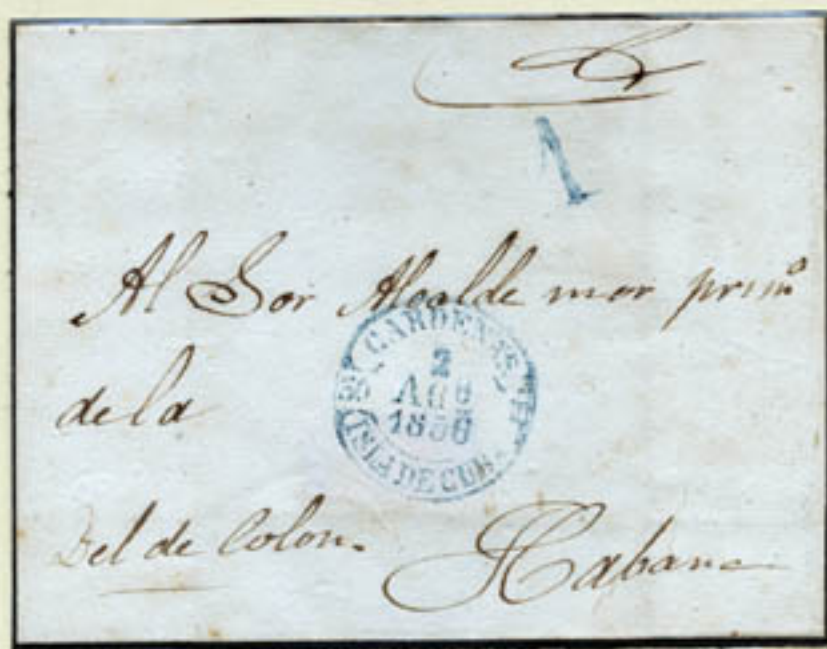 1
Al Sor Alcalde mor prim⁰
de la
CARDENAS
2
AGO
1856
ISLA DE CUBA
Del de Colon.
Habana